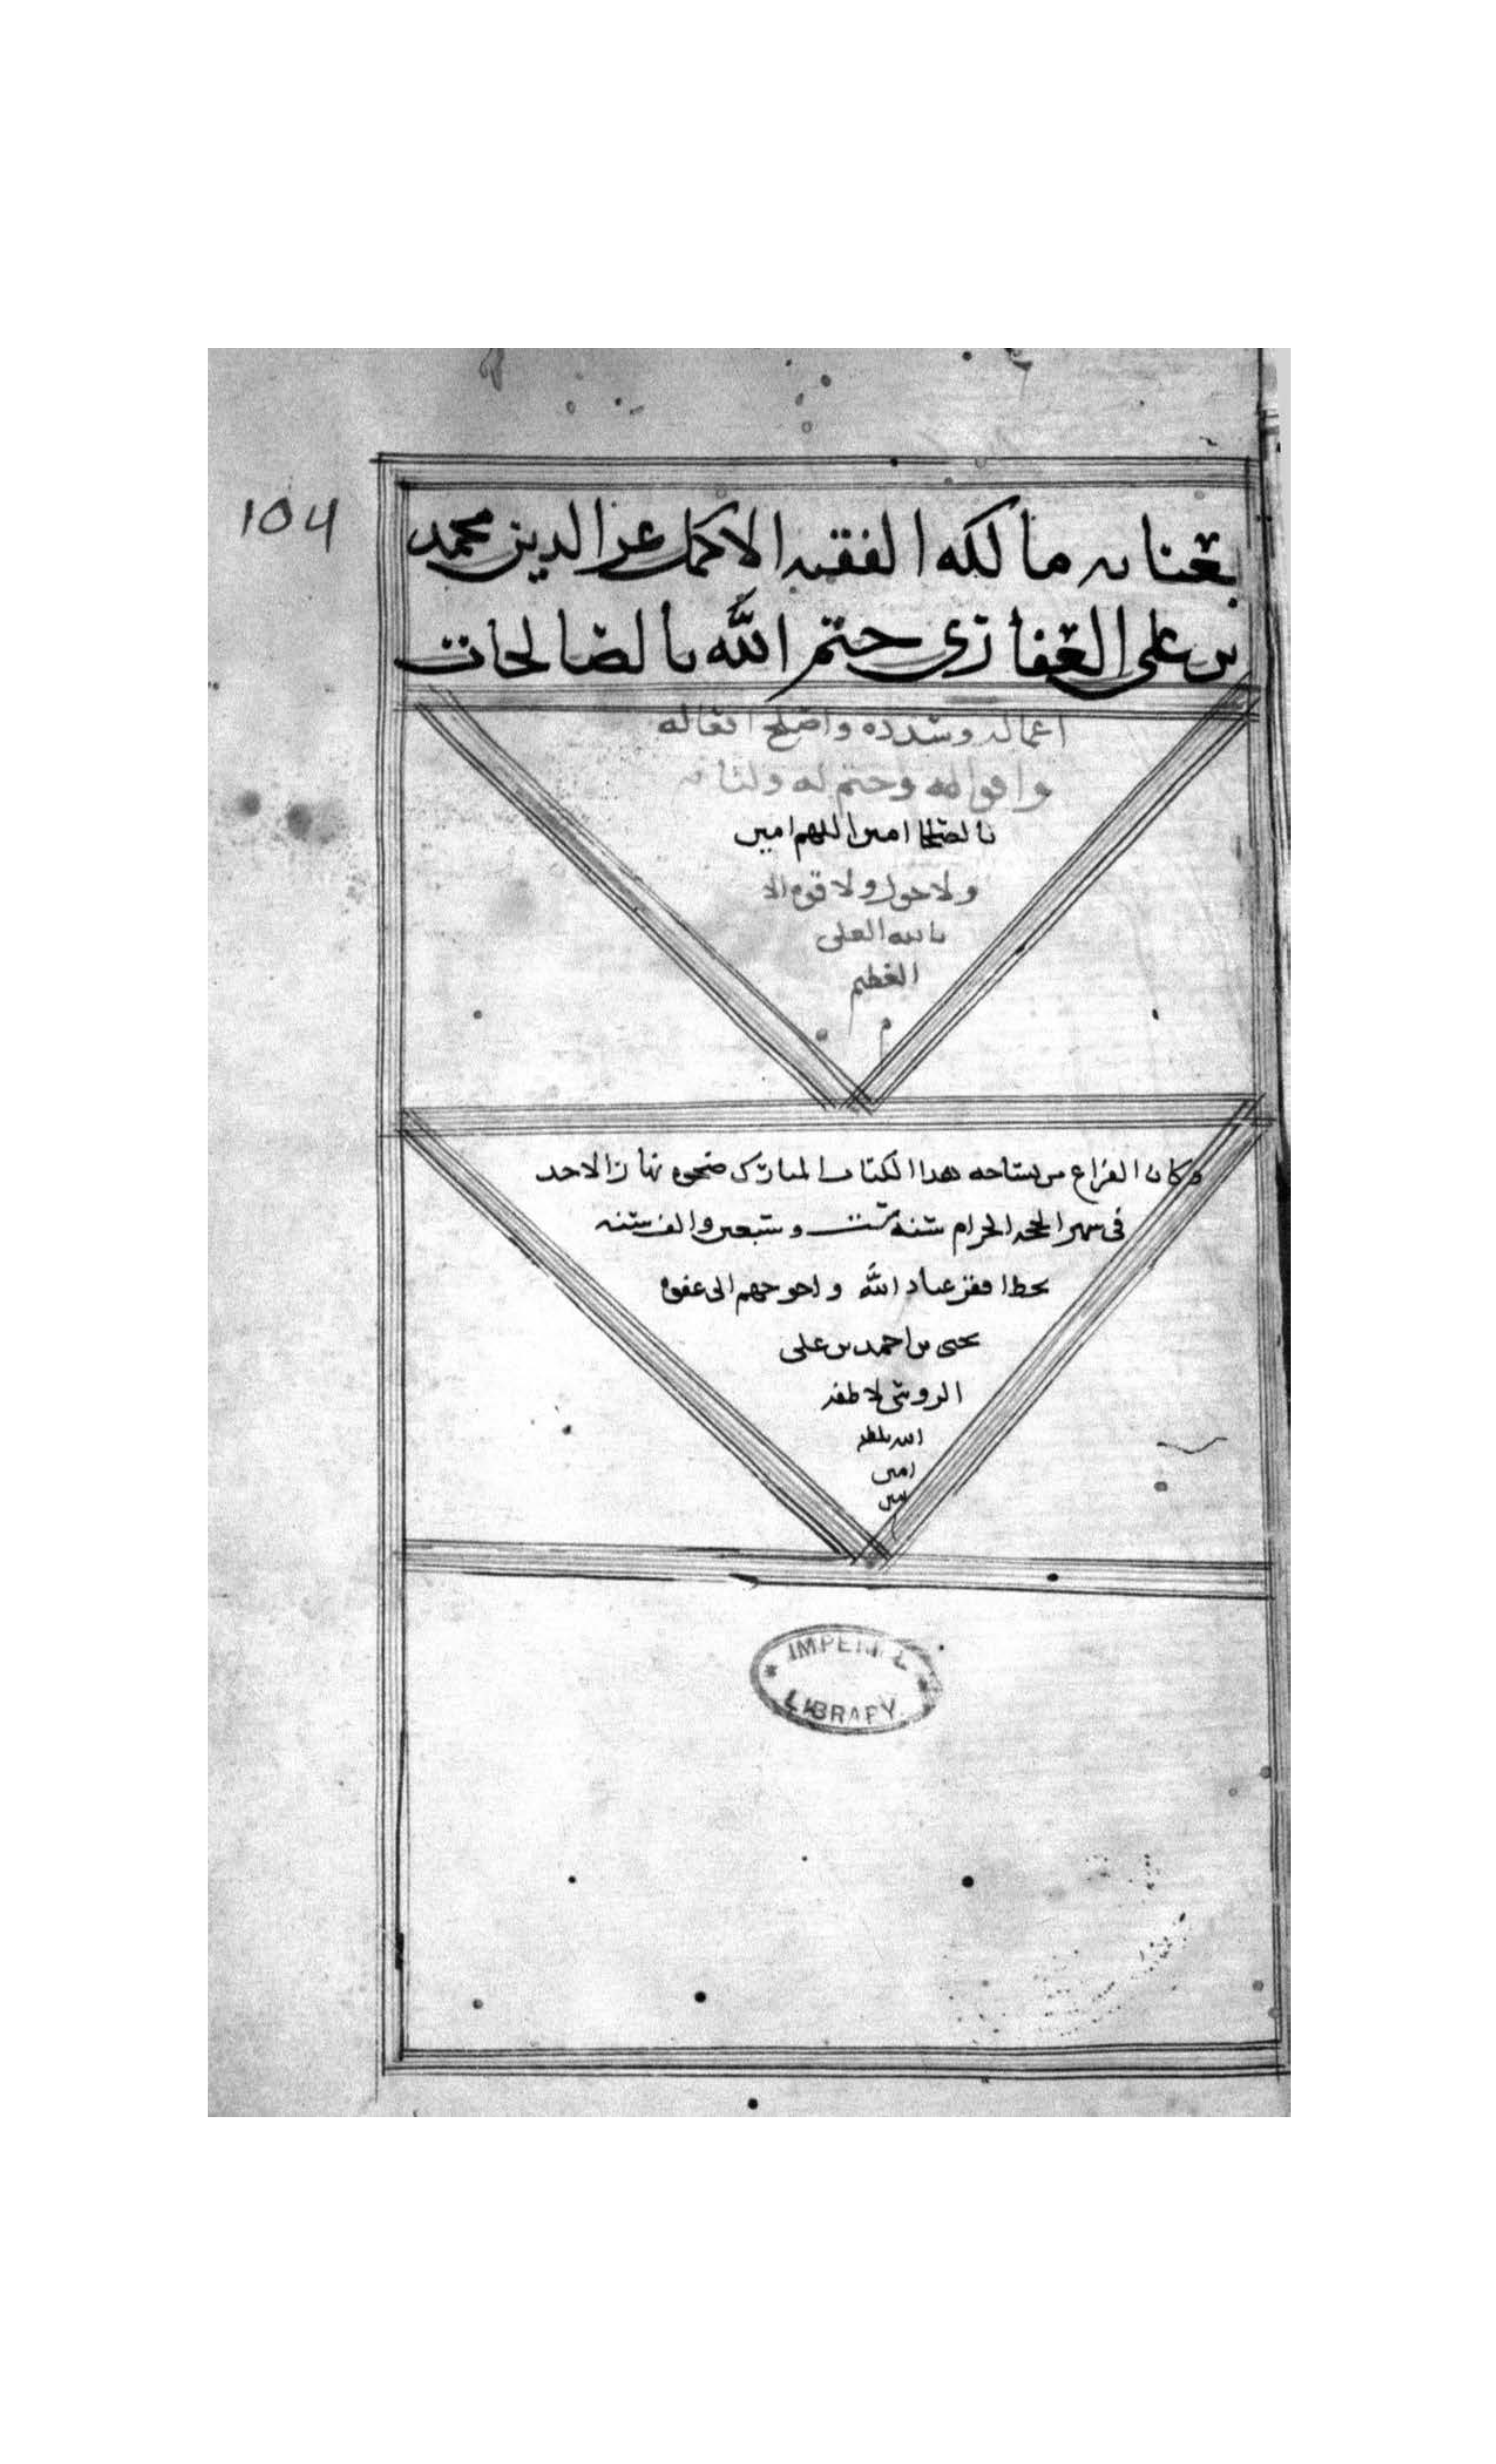 104
بعنايه مالكه الفقيه الاكمل عز الدين محمد
بن علي الغفاري ختم الله بالصالحات
اعماله وسدده واصلح افعاله
واقواله وختم له ولنا به
بالصلحا امين اللهم امين
ولا حول ولا قوه الا
بالله العلي
العظيم
م
وكان الفراغ من نساخه هدا الكتاب المبارك ضحوه نهار الاحد
في شهر الحجه الحرام سنه ست وسبعين والف سنه
بخط افقر عباد الله واحوجهم الى عفوه
يحيى بن احمد بن علي
لاطفه
الله بلطفه
امين
IMPERIAL
LIBRARY.